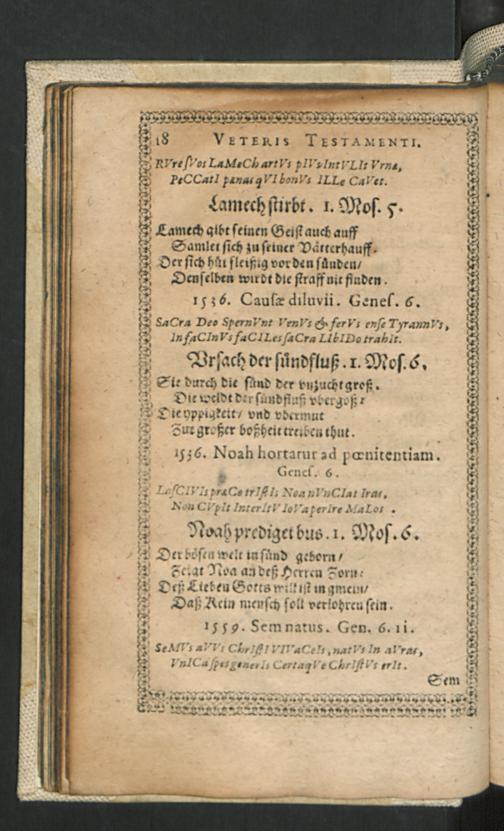 18 VETERIS TESTAMENTI.
RVre sVos LaMeCh artVs pIVs IntVLIt Vrnæ,
PeCCatI pænas qVI bonVs ILLe CaVet.
Lamech stirbt. 1. Mos. 5.
Lamech gibt seinen Geist auch auff
Samlet sich zu seiner Vätterhauff.
Der sich hüt fleißig vor den sünden/
Denselben wirdt die straff nit finden.
1536. Causæ diluvii. Genes. 6.
SaCra Deo SpernVnt VenVs & ferVs ense TyrannVs,
In faCInVs faCILes saCra LIbIDo trahIt.
Vrsach der sündfluß. 1. Mos. 6.
Sie durch die sünd der vnzucht groß.
Die weldt der sündfluß vbergoß:
Die yppigkeit/ vnd vbermut
Zur großer boßheit treiben thut.
1536. Noah hortatur ad pœnitentiam.
Genes. 6.
LasCIVIs præCo trIstIs Noa nVnCIat Iras,
Non CVpIt InterItV IoVa perIre MaLos.
Noah prediget bus. 1. Mos. 6.
Der bösen welt in sünd geborn/
Zeigt Noa an deß Herren Zorn:
Deß Lieben Gotts will ist in gmein/
Daß Kein mensch soll verlohren sein.
1559. Sem natus. Gen. 6. 11.
SeMVs aVVs ChrIstI VIVaCeIs, natVs In aVras,
VnICa spes generIs CertaqVe ChrIstVs erIt.
Sem